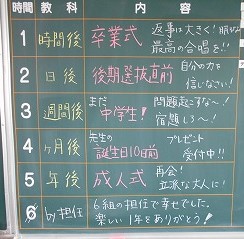 時間 教科 内容
1 時間後 卒業式 返事は大きく!
最高の合唱を!!
2 日後 後期選抜直前 自分の力を
信じなさい!
3 週間後 まだ中学生! 問題起こすな~!
宿題しろ~!
4 ヶ月後 先生の誕生日10日前 プレゼント
受付中!!
5 年後 成人式 再会!
立派な大人に!
6 by担任 6組の担任で幸せでした。
楽しい1年をありがとう!